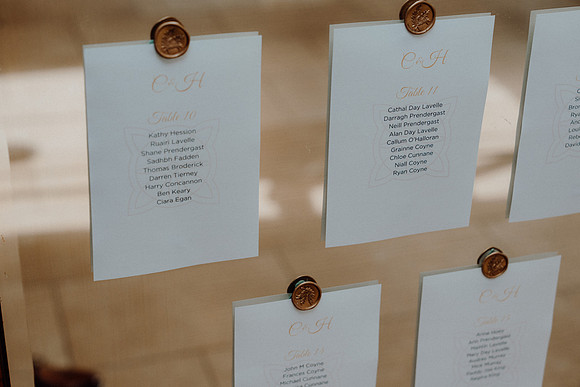 C & H
Table 10
Kathy Hession
Ruairi Lavelle
Shane Prendergast
Sadhbh Fadden
Thomas Broderick
Darren Tierney
Harry Concannon
Ben Keary
Ciara Egan
C & H
Table 11
Cathal Day Lavelle
Darragh Prendergast
Neill Prendergast
Alan Day Lavelle
Callum O'Halloran
Grainne Coyne
Chloe Cunnane
Niall Coyne
Ryan Coyne
C & H
Table
John M Coyne
Frances Coyne
Michael Cunnane
Cunnane
C & H
Table
Prendergast
Lavelle
Mary Day Lavelle
Murray
Murray